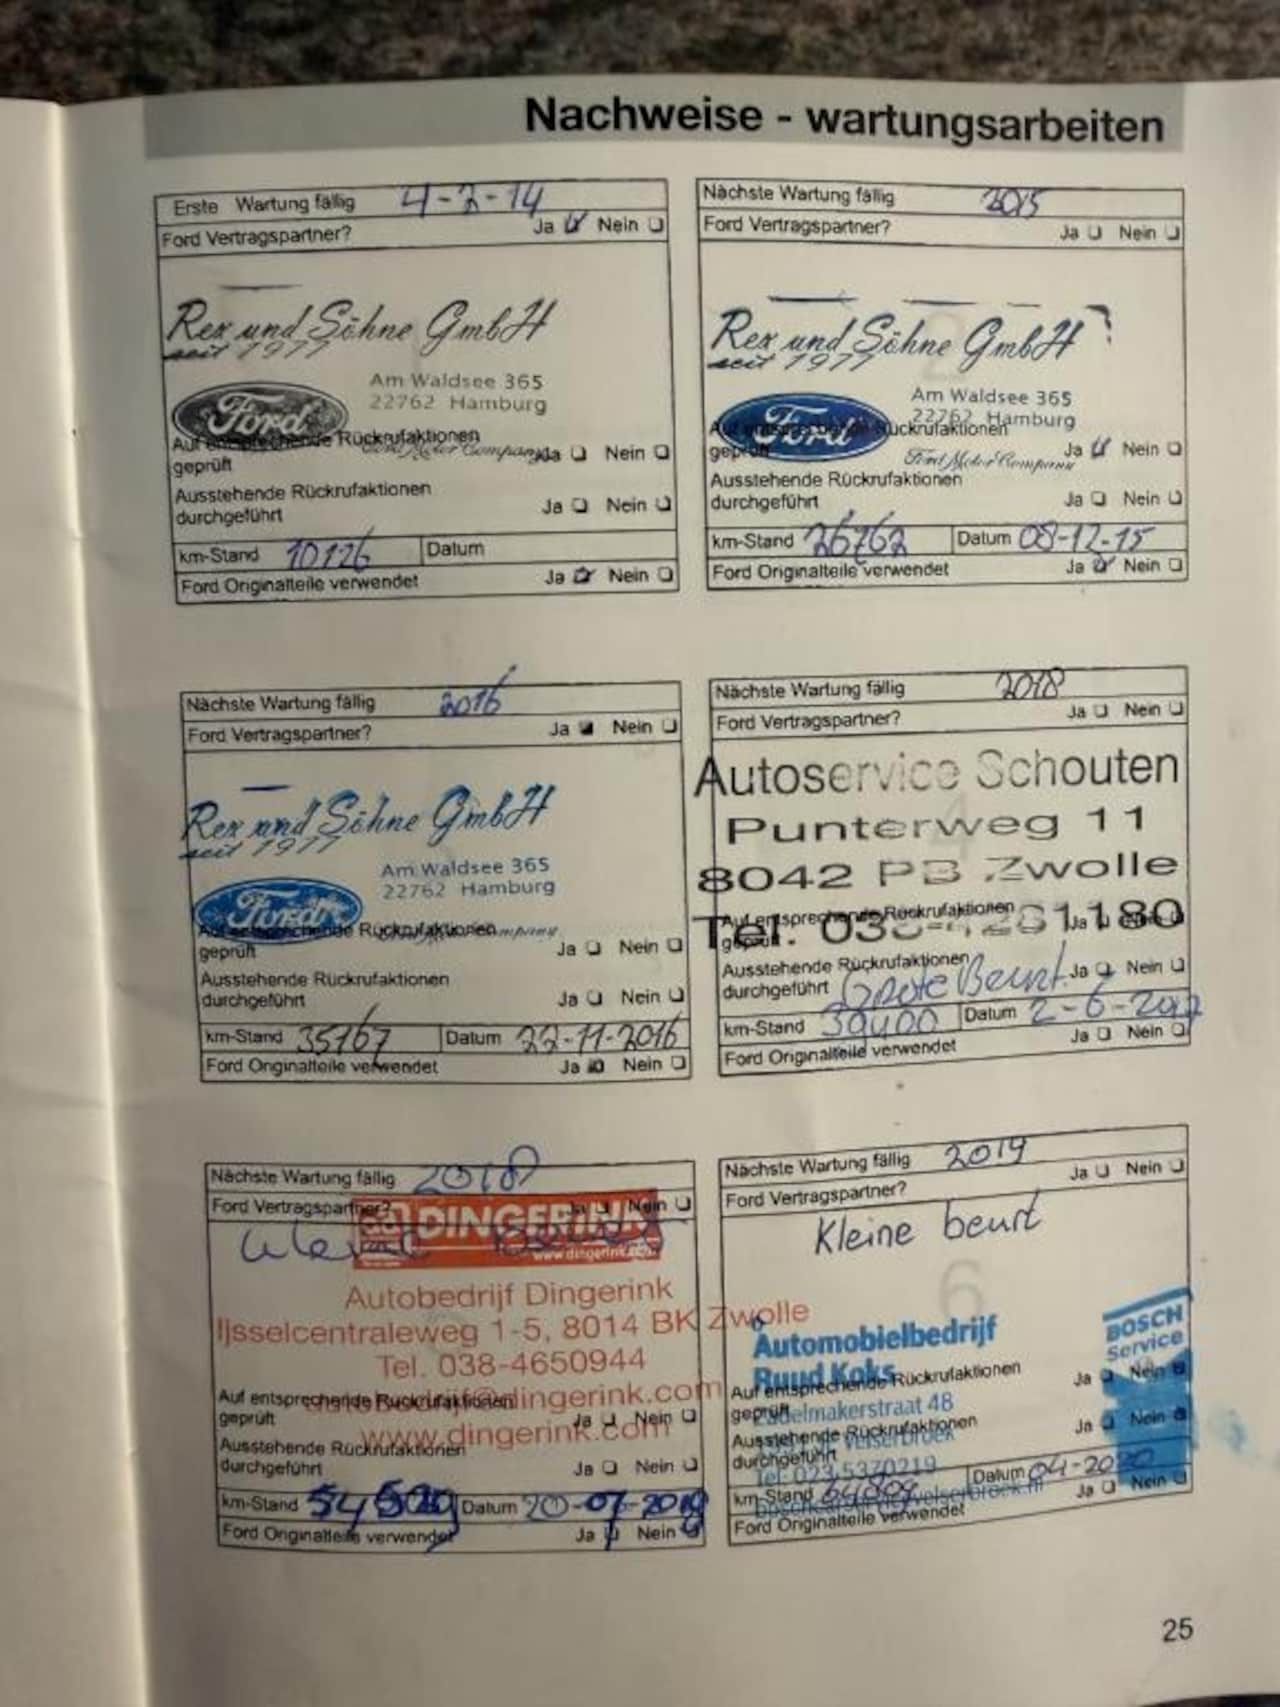 Nachweise - wartungsarbeiten
Erste Wartung fällig 4-2-14
Ford Vertragspartner? Ja Nein
Rex und Söhne GmbH
seit 1977
Am Waldsee 365
22762 Hamburg
Ford
Ford Motor Company
Auf entsprechende Rückrufaktionen
geprüft Ja Nein
Ausstehende Rückrufaktionen
durchgeführt Ja Nein
km-Stand 10126 Datum
Ford Originalteile verwendet Ja Nein
Nächste Wartung fällig 2015
Ford Vertragspartner? Ja Nein
Rex und Söhne GmbH
seit 1977
Am Waldsee 365
22762 Hamburg
Ford
Ford Motor Company
Auf entsprechende Rückrufaktionen
geprüft Ja Nein
Ausstehende Rückrufaktionen
durchgeführt Ja Nein
km-Stand 26762 Datum 08-12-15
Ford Originalteile verwendet Ja Nein
Nächste Wartung fällig 2016
Ford Vertragspartner? Ja Nein
Rex und Söhne GmbH
seit 1977
Am Waldsee 365
22762 Hamburg
Ford
Auf entsprechende Rückrufaktionen
geprüft Ja Nein
Ausstehende Rückrufaktionen
durchgeführt Ja Nein
km-Stand 35167 Datum 22-11-2016
Ford Originalteile verwendet Ja Nein
Nächste Wartung fällig 2018
Ford Vertragspartner? Ja Nein
4
Autoservice Schouten
Punterweg 11
8042 PB Zwolle
Auf entsprechende Rückrufaktionen
geprüft Ja
Tel.
Ausstehende Rückrufaktionen
durchgeführt Grote Beurt Ja Nein
km-Stand 39400 Datum 2-6-2017
Ford Originalteile verwendet Ja Nein
Nächste Wartung fällig 2018
Ford Vertragspartner? Ja Nein
DINGERINK
www.dingerink.com
Autobedrijf Dingerink
IJsselcentraleweg 1-5, 8014 BK Zwolle
Tel. 038-4650944
Auf entsprechende Rückrufaktionen
geprüft Ja Nein
www.dingerink.com
Ausstehende Rückrufaktionen
durchgeführt Ja Nein
km-Stand Datum 20-07-2018
Ford Originalteile verwendet Ja Nein
Nächste Wartung fällig 2019
Ford Vertragspartner? Ja Nein
Kleine beurt
6
Automobielbedrijf
Ruud Koks
BOSCH
Service
Auf entsprechende Rückrufaktionen
geprüft Ja Nein
Zadelmakerstraat 48
Ausstehende Rückrufaktionen
durchgeführt Ja Nein
Velserbroek
Tel: 023 5370219
km-Stand Datum 04-2020
Ford Originalteile verwendet Ja Nein
25